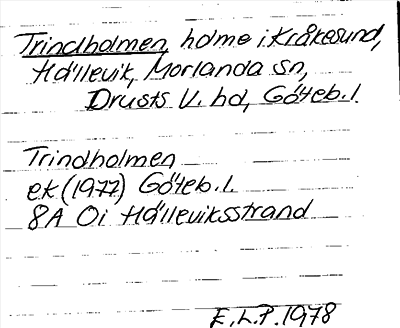 Trindholmen, holme i Kråkesund,
Hällevik, Morlanda sn,
Drusts V. hd, Göteb. l.
Trindholmen
ek (1977) Göteb. l.
8A 0i Hälleviksstrand
E.L.P. 1978